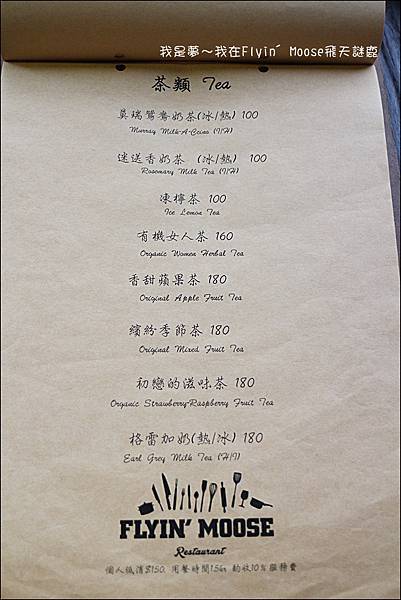 我是夢～我在Flyin' Moose飛天謎鹿
茶類 Tea
莫瑞鴛鴦奶茶(冰/熱) 100
Murray Milk-A-Ccino (I/H)
迷迭香奶茶 (冰/熱) 100
Rosemary Milk Tea (I/H)
凍檸茶 100
Ice Lemon Tea
有機女人茶 160
Organic Women Herbal Tea
香甜蘋果茶 180
Original Apple Fruit Tea
繽紛季節茶 180
Original Mixed Fruit Tea
初戀的滋味茶 180
Organic Strawberry-Raspberry Fruit Tea
格雷加奶(熱/冰) 180
Earl Grey Milk Tea (H/I)
FLYIN' MOOSE
Restaurant
個人低消$150. 用餐時間1.5hr 酌收10%服務費